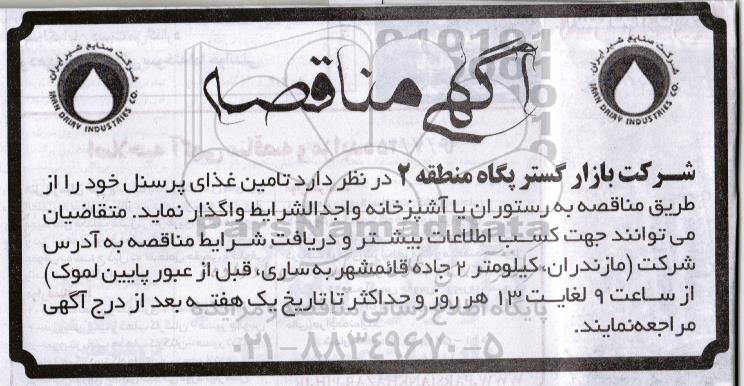 آگهی مناقصه
شرکت صنایع شیر ایران
IRAN DAIRY INDUSTRIES CO.
شرکت صنایع شیر ایران
IRAN DAIRY INDUSTRIES CO.
شرکت بازار گستر پگاه منطقه ۲ در نظر دارد تامین غذای پرسنل خود را از
طریق مناقصه به رستوران یا آشپزخانه واجدالشرایط واگذار نماید. متقاضیان
می توانند جهت کسب اطلاعات بیشتر و دریافت شرایط مناقصه به آدرس
شرکت (مازندران، کیلومتر ۲ جاده قائمشهر به ساری، قبل از عبور پایین لموک)
از ساعت ۹ لغایت ۱۳ هر روز و حداکثر تا تاریخ یک هفته بعد از درج آگهی
مراجعه‌نمایند.
ParsNamadData
پایگاه اطلاع رسانی مناقصه و مزایده
۰۲۱-۸۸۳۴۹۶۷۰-۵